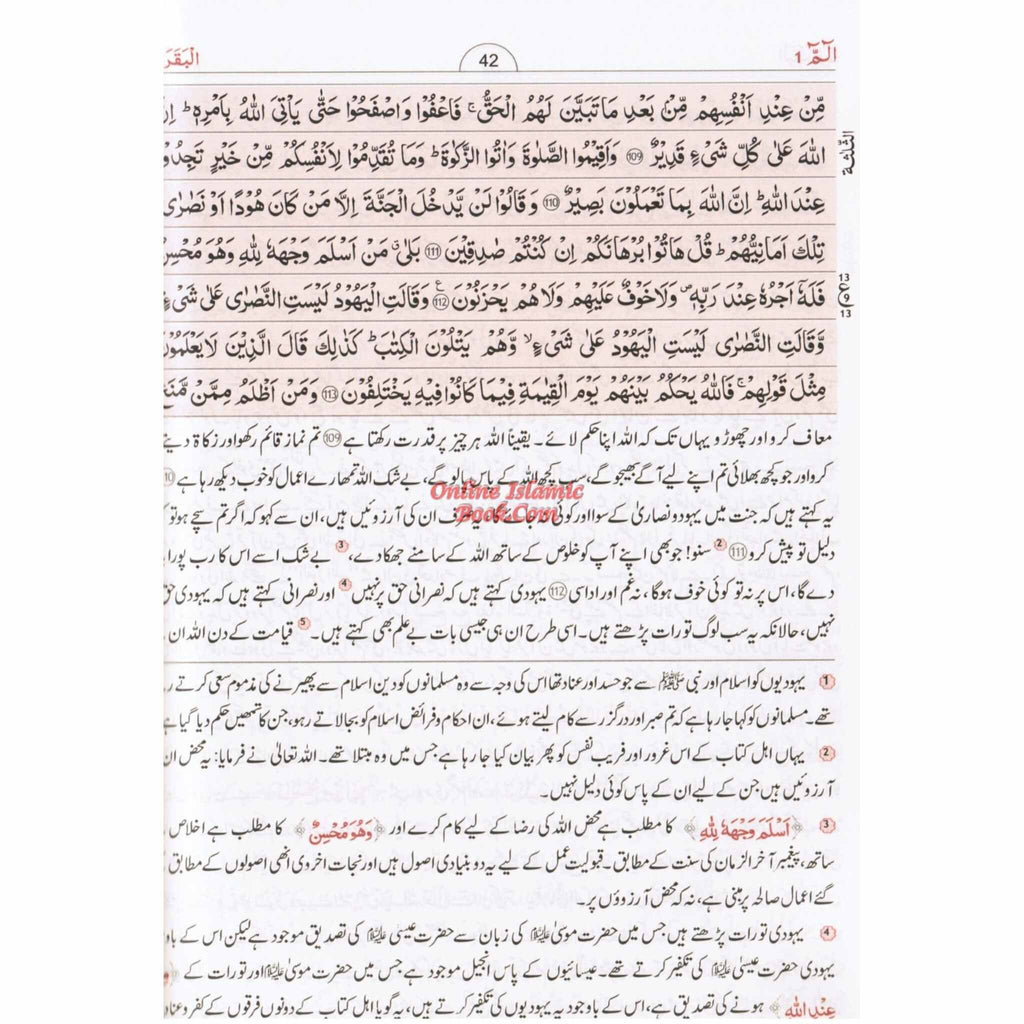 الٓمّٓ 1
42
الْبَقَرَ
مِّنْ عِنْدِ اَنْفُسِهِمْ مِّنْۢ بَعْدِ مَا تَبَيَّنَ لَهُمُ الْحَقُّ ۚ فَاعْفُوْا وَاصْفَحُوْا حَتّٰى يَاْتِيَ اللّٰهُ بِاَمْرِهٖ ؕ اِنَّ
الثلثة
اللّٰهَ عَلٰى كُلِّ شَيْءٍ قَدِيْرٌ ﴿109﴾ وَاَقِيْمُوا الصَّلٰوةَ وَاٰتُوا الزَّكٰوةَ ؕ وَمَا تُقَدِّمُوْا لِاَنْفُسِكُمْ مِّنْ خَيْرٍ تَجِدُوْ
عِنْدَ اللّٰهِ ؕ اِنَّ اللّٰهَ بِمَا تَعْمَلُوْنَ بَصِيْرٌ ﴿110﴾ وَقَالُوْا لَنْ يَّدْخُلَ الْجَنَّةَ اِلَّا مَنْ كَانَ هُوْدًا اَوْ نَصٰرٰى
تِلْكَ اَمَانِيُّهُمْ ؕ قُلْ هَاتُوْا بُرْهَانَكُمْ اِنْ كُنْتُمْ صٰدِقِيْنَ ﴿111﴾ بَلٰى ۗ مَنْ اَسْلَمَ وَجْهَهٗ لِلّٰهِ وَهُوَ مُحْسِنٌ
13
ع
13
فَلَهٗٓ اَجْرُهٗ عِنْدَ رَبِّهٖ ۪ وَلَا خَوْفٌ عَلَيْهِمْ وَلَا هُمْ يَحْزَنُوْنَ ﴿112﴾ۧ وَقَالَتِ الْيَهُوْدُ لَيْسَتِ النَّصٰرٰى عَلٰى شَيْءٍ
وَّقَالَتِ النَّصٰرٰى لَيْسَتِ الْيَهُوْدُ عَلٰى شَيْءٍ ۙ وَّهُمْ يَتْلُوْنَ الْكِتٰبَ ؕ كَذٰلِكَ قَالَ الَّذِيْنَ لَا يَعْلَمُوْنَ
مِثْلَ قَوْلِهِمْ ۚ فَاللّٰهُ يَحْكُمُ بَيْنَهُمْ يَوْمَ الْقِيٰمَةِ فِيْمَا كَانُوْا فِيْهِ يَخْتَلِفُوْنَ ﴿113﴾ وَمَنْ اَظْلَمُ مِمَّنْ مَّنَعَ
معاف کرو اور چھوڑو یہاں تک کہ اللہ اپنا حکم لائے۔ یقیناً اللہ ہر چیز پر قدرت رکھتا ہے ﴿109﴾ تم نماز قائم رکھو اور زکاۃ دیتے
کرو اور جو کچھ بھلائی تم اپنے لیے آگے بھیجو گے، سب کچھ اللہ کے پاس پالو گے، بے شک اللہ تمھارے اعمال کو خوب دیکھ رہا ہے
Online Islamic
Book.Com
یہ کہتے ہیں کہ جنت میں یہود و نصاریٰ کے سوا اور کوئی نہ جائے گا، یہ صرف ان کی آرزوئیں ہیں، ان سے کہو کہ اگر تم سچے ہو تو
دلیل تو پیش کرو ﴿111﴾ 2 سنو! جو بھی اپنے آپ کو خلوص کے ساتھ اللہ کے سامنے جھکا دے، 3 بے شک اسے اس کا رب پورا
دے گا، اس پر نہ تو کوئی خوف ہوگا، نہ غم اور اداسی ﴿112﴾ یہودی کہتے ہیں کہ نصرانی حق پر نہیں 4 اور نصرانی کہتے ہیں کہ یہودی حق
نہیں، حالانکہ یہ سب لوگ تورات پڑھتے ہیں۔ اسی طرح ان ہی جیسی بات بے علم بھی کہتے ہیں۔ 5 قیامت کے دن اللہ ان
1 یہودیوں کو اسلام اور نبی ﷺ سے جو حسد اور عناد تھا اس کی وجہ سے وہ مسلمانوں کو دین اسلام سے پھیرنے کی مذموم سعی کرتے ر
تھے۔ مسلمانوں کو کہا جا رہا ہے کہ تم صبر اور درگزر سے کام لیتے ہوئے، ان احکام و فرائض اسلام کو بجا لاتے رہو، جن کا تمھیں حکم دیا گیا ہے
2 یہاں اہل کتاب کے اس غرور اور فریب نفس کو پھر بیان کیا جا رہا ہے جس میں وہ مبتلا تھے۔ اللہ تعالیٰ نے فرمایا: یہ محض ان
آرزوئیں ہیں جن کے لیے ان کے پاس کوئی دلیل نہیں۔
3 ﴿اَسْلَمَ وَجْهَهٗ لِلّٰهِ﴾ کا مطلب ہے محض اللہ کی رضا کے لیے کام کرے اور ﴿وَهُوَ مُحْسِنٌ﴾ کا مطلب ہے اخلاص
ساتھ، پیغمبر آخر الزمان کی سنت کے مطابق۔ قبولیت عمل کے لیے یہ دو بنیادی اصول ہیں اور نجات اخروی انھی اصولوں کے مطابق
گئے اعمال صالحہ پر مبنی ہے، نہ کہ محض آرزوؤں پر۔
4 یہودی تورات پڑھتے ہیں جس میں حضرت موسیٰ علیہ السلام کی زبان سے حضرت عیسیٰ علیہ السلام کی تصدیق موجود ہے لیکن اس کے باو
یہودی حضرت عیسیٰ علیہ السلام کی تکفیر کرتے تھے۔ عیسائیوں کے پاس انجیل موجود ہے جس میں حضرت موسیٰ علیہ السلام اور تورات کے
عِنْدِ اللّٰهِ﴾ ہونے کی تصدیق ہے، اس کے باوجود یہ یہودیوں کی تکفیر کرتے ہیں، یہ گویا اہل کتاب کے دونوں فرقوں کے کفر و عناد